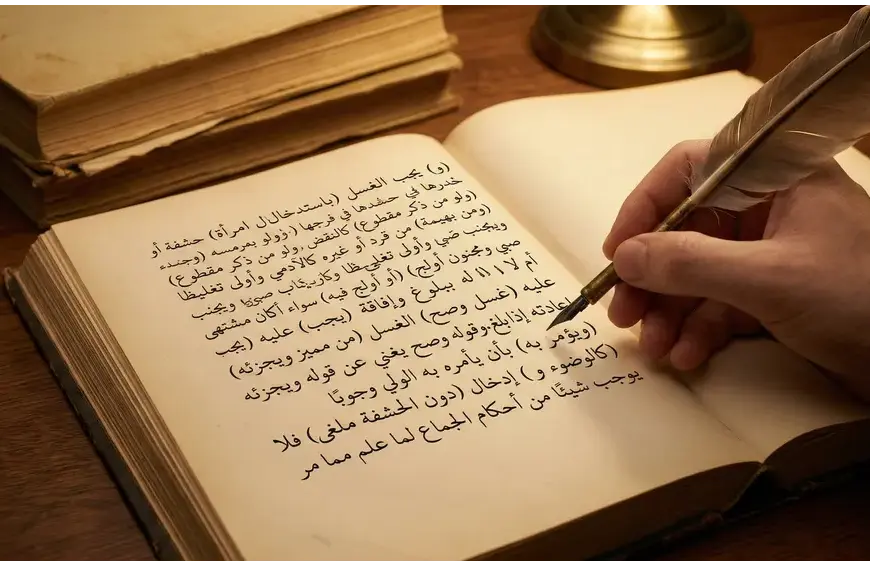 (و) يجب الغسل (باستدخالل امرأة) حشفة أو
خدرها في حشدها في فرجها (زولو
(ولو من ذكر مقطوع) كالنقض ,ولو من ذكر مقطوع)
(ومن بهيمة) من قرد أو غيره كالآدمي وأولى تغليظا
ويجنب ضبي وأولى تغليظا ويجنب
صبي ومجنون أولج) (أو أولج فيه) سواء أكان مشتهى
أم لا ١١١ له ببلوغ وإفاقة (يجب) عليه (يجب
عليه (غسل وصح) الغسل (من مميز ويجزئه)
إعادته إذابلغ,وقوله وصح يغني عن قوله ويجزئه
(ويؤمر به) بأن يأمره به الولي وجوبًا
(كالوضوء و) إدخال (دون الحشفة ملغى) فلا
يوجب شيئًا من أحكام الجماع لما علم مما مر